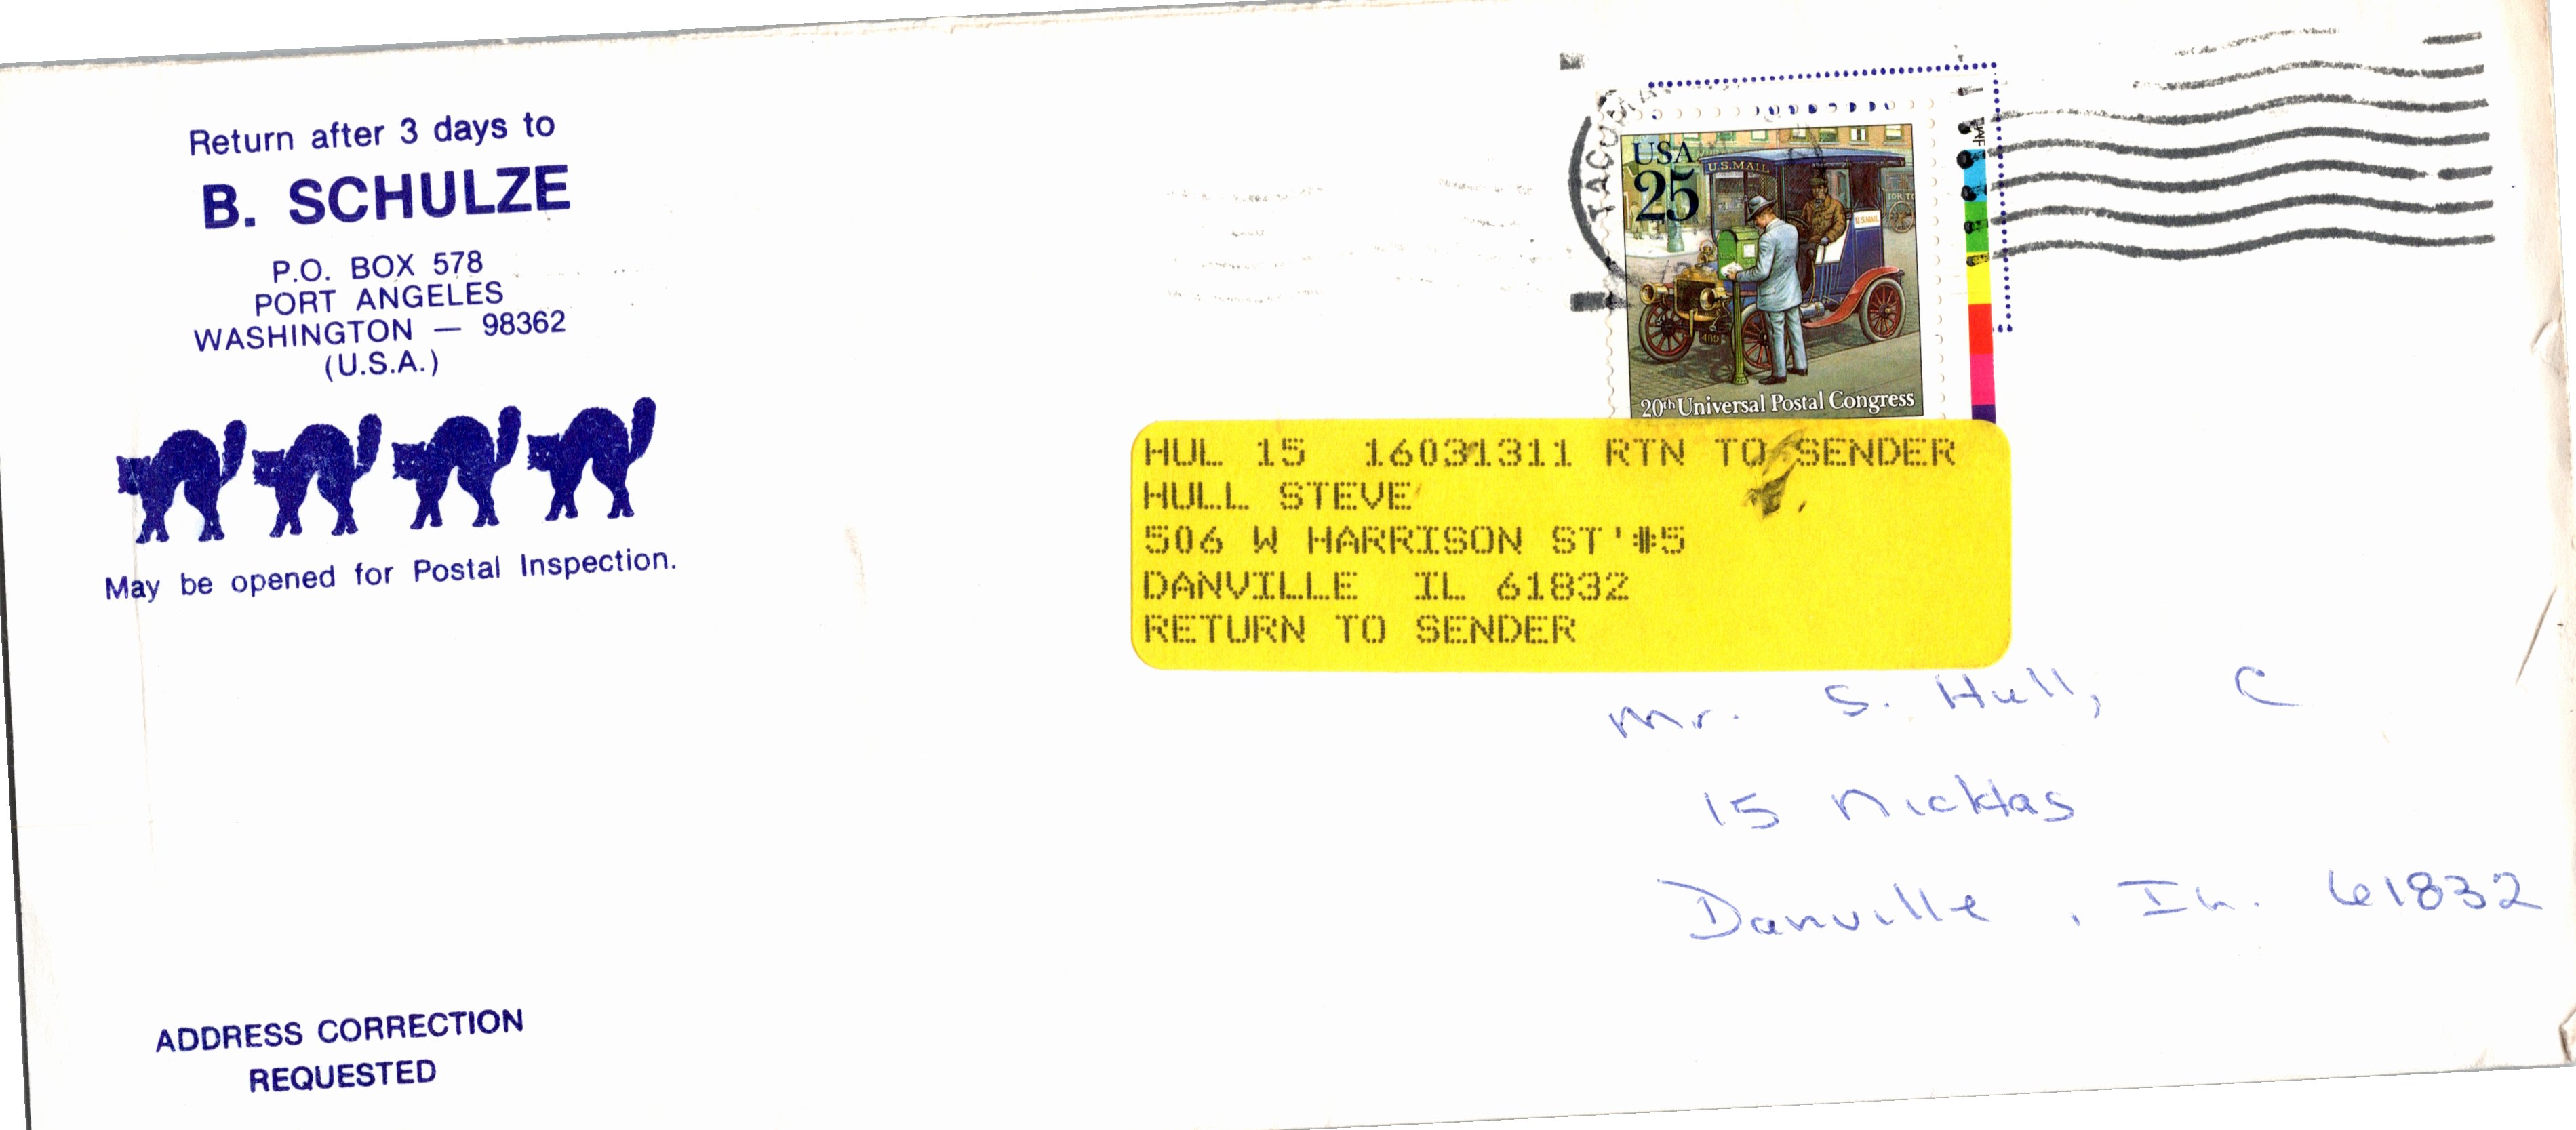 Return after 3 days to
B. SCHULZE
P.O. BOX 578
PORT ANGELES
WASHINGTON — 98362
(U.S.A.)
May be opened for Postal Inspection.
ADDRESS CORRECTION
REQUESTED
TACOMA
USA
25
U.S. MAIL
U.S. MAIL
20th Universal Postal Congress
HUL 15 16031311 RTN TO SENDER
HULL STEVE
506 W HARRISON ST'#5
DANVILLE IL 61832
RETURN TO SENDER
Mr. S. Hull, C
15 Nicktas
Danville, Ih. 61832